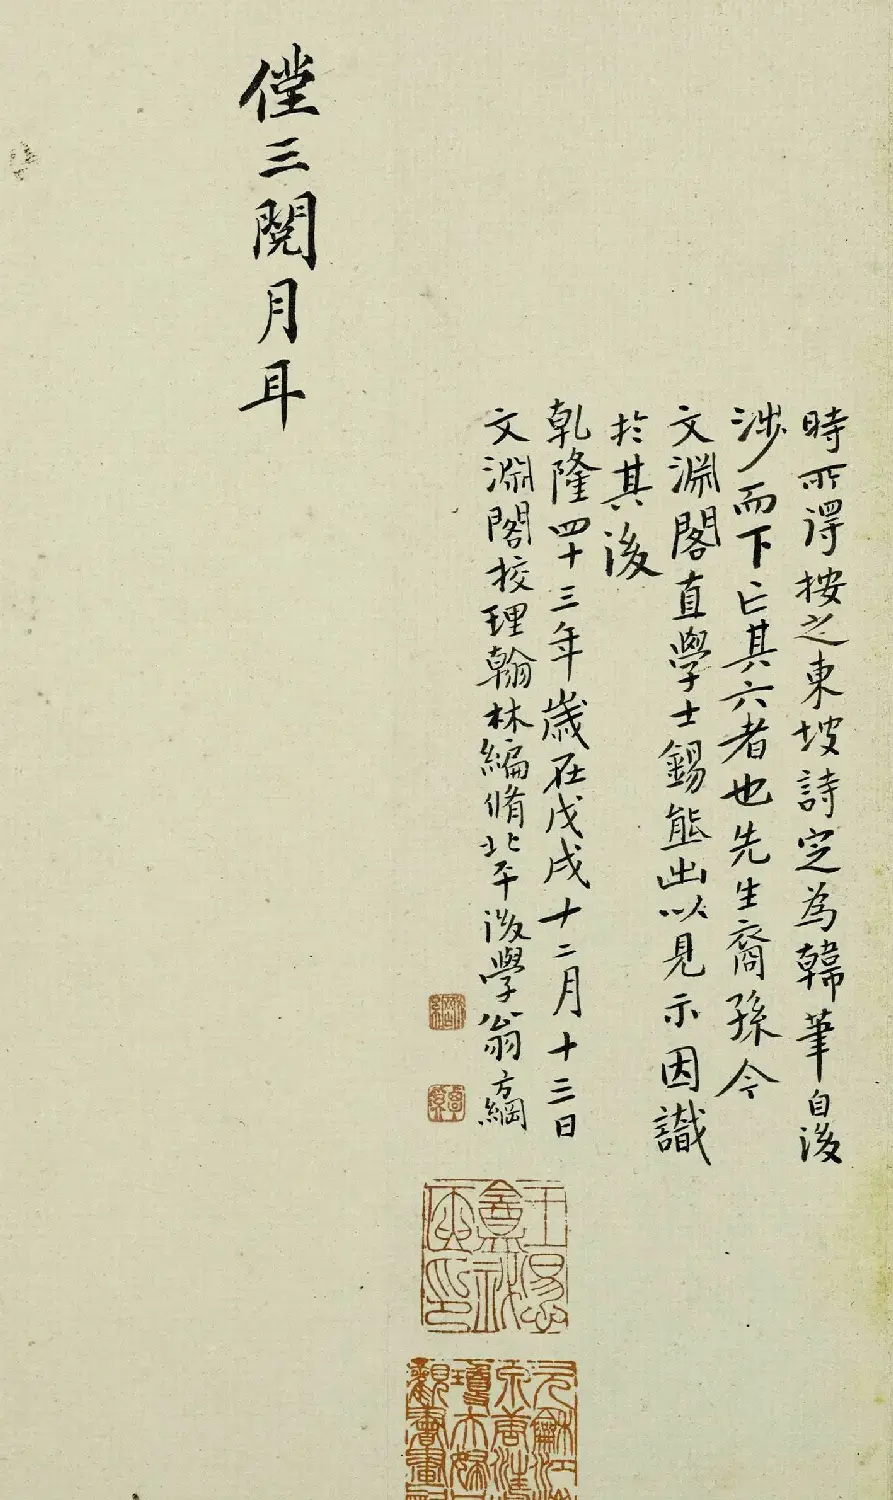 時所得按之東坡詩定為韓筆自後
涉而下亡其六者也先生裔孫今
文淵閣直學士錫熊出以見示因識
於其後
乾隆四十三年歲在戊戌十二月十三日
文淵閣校理翰林編脩北平後學翁方綱
僅三閱月耳